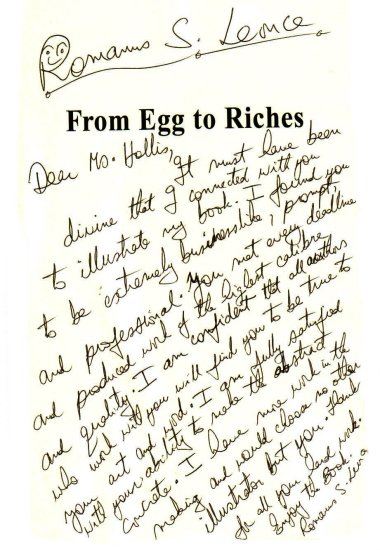 Romanus S. Leonce
From Egg to Riches
Dear Ms. Hollis,
It must have been
divine that I connected with you
to illustrate my book. I found you
to be extremely businesslike, prompt,
and professional. You met every deadline
and produced work of the highest calibre
and quality. I am confident that all authors
who work with you will find you to be true to
your art and word. I am fully satisfied
with your ability to make the abstract
concrete. I have more work in the
making and would choose no other
illustrator but you. Thank
for all your hard work.
Enjoy the Book.
Romanus S.